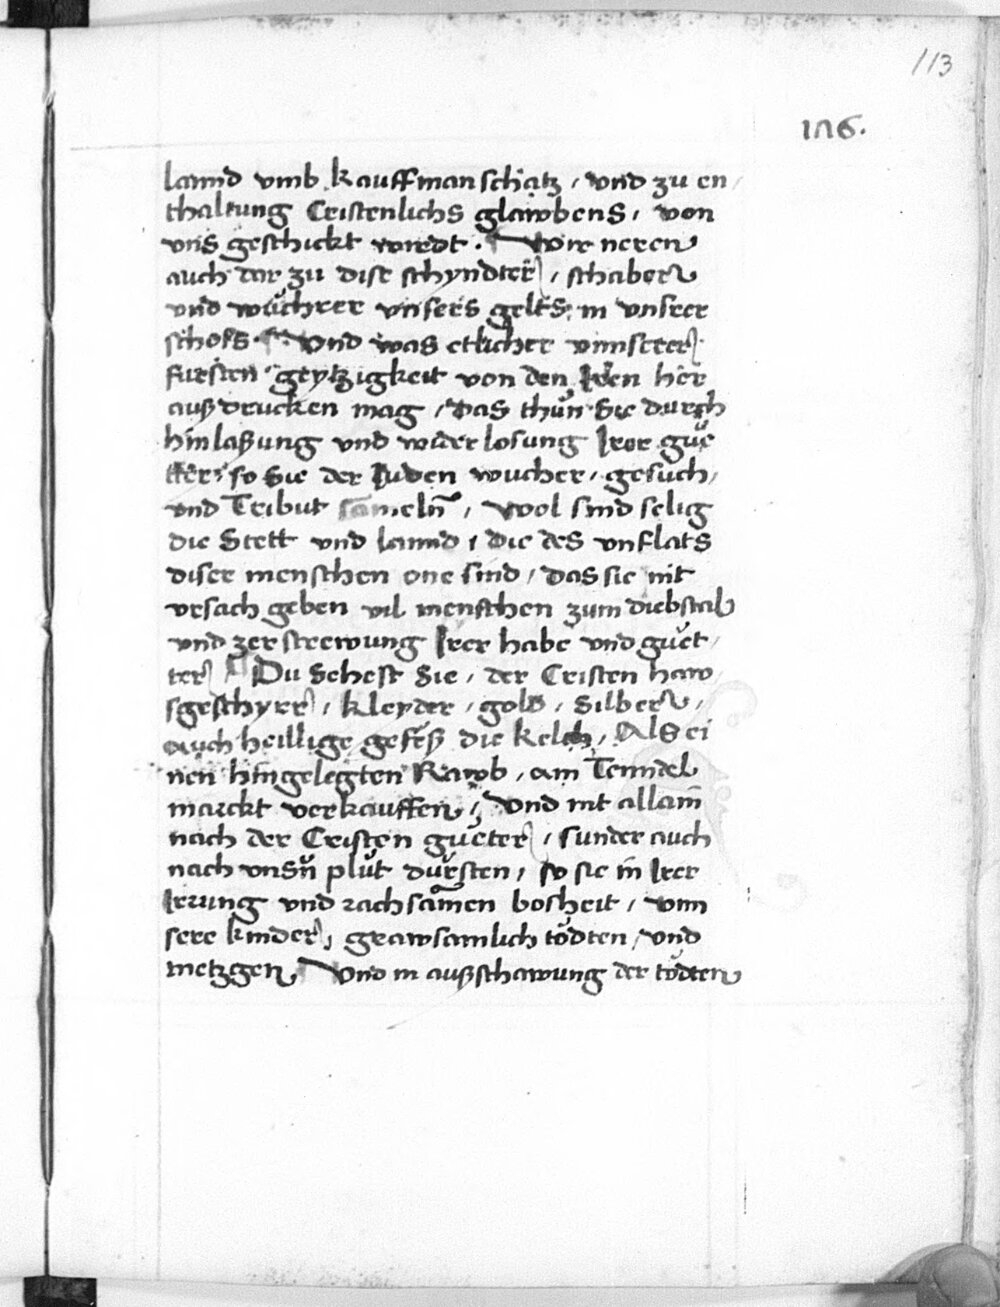 113
1n6.
lannd vmb kauffmanschatz, vnd zu en,
thaltung Cristenlichs glawbens, von
vns geschickt wirdt. Wir neren
auch dar zu dise schyndter, schaber
vnd wůchrer vnsers gelts in vnserer
schoss. Vnd was etlicher vnnserer
fursten geytzigkeit von den Jůden her
außdrucken mag, das thůn Sie durch
hinlaßung vnd widerlosung Irer gue
tter, so Sie der Juden wucher, gesuch,
vnd Tribut sameln̄, Wol sind selig
die Stett vnd lannd, die des vnflats
diser menschen one sind, das sie nit
vrsach geben vil menschen zum diebstal
vnd zerstrewung Irer habe vnd guet,
ter Du Sehest Sie, der Cristen haw,
sgeschyrr, kleyder, gold, Silber,
auch heillige gefeß die kelch, Als ei
nen hingelegten Rawb, am Tenndel
marckt verkauffen, Vnd nit allain
nach der Cristen gueter, sunder auch
nach vnsn̄ plůt dursten, so sie in Irer
Irrung vnd rachsamen bosheit, vnn
sere kinder, grawsamlich tödten, vnd
metzgen Vnd in außschawung der tödten